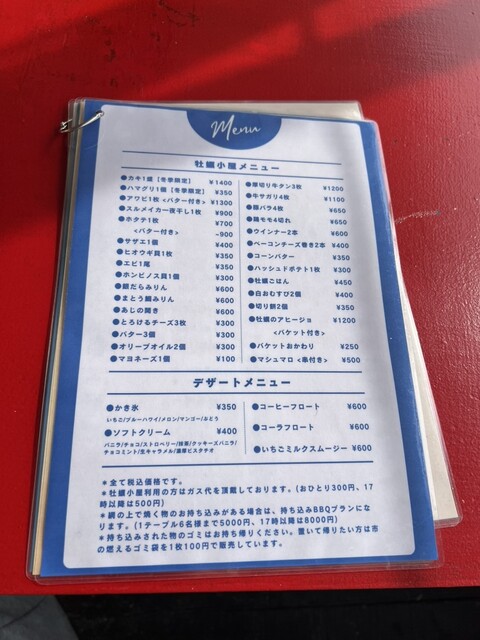 Menu
牡蠣小屋メニュー
●カキ1盛［冬季限定］ ¥1400
●ハマグリ1個［冬季限定］ ¥350
●アワビ1枚 <バター付き> ¥1300
●スルメイカ一夜干し1枚 ¥900
●ホタテ1枚 ¥700
<バター付き> ~900
●サザエ1個 ¥400
●ヒオウギ貝1枚 ¥350
●エビ1尾 ¥350
●ホンビノス貝1個 ¥300
●銀だらみりん ¥600
●まとう鯛みりん ¥600
●あじの開き ¥600
●とろけるチーズ3枚 ¥300
●バター3個 ¥300
●オリーブオイル2個 ¥300
●マヨネーズ1個 ¥100
●厚切り牛タン3枚 ¥1200
●牛サガリ4枚 ¥1100
●豚バラ4枚 ¥650
●鶏モモ4切れ ¥650
●ウインナー2本 ¥600
●ベーコンチーズ巻き2本 ¥400
●コーンバター ¥350
●ハッシュドポテト1枚 ¥300
●牡蠣ごはん ¥450
●白おむすび2個 ¥400
●切り餅2個 ¥350
●牡蠣のアヒージョ ¥1200
<バケット付き>
●バケットおかわり ¥250
●マシュマロ <串付き> ¥500
デザートメニュー
●かき氷 ¥350
いちご/ブルーハワイ/メロン/マンゴー/ぶどう
●ソフトクリーム ¥400
バニラ/チョコ/ストロベリー/抹茶/クッキーズバニラ/
チョコミント/生キャラメル/濃厚ピスタチオ
●コーヒーフロート ¥600
●コーラフロート ¥600
●いちごミルクスムージー ¥600
＊全て税込価格です。
＊牡蠣小屋利用の方はガス代を頂戴しております。(おひとり300円、17
時以降は500円)
＊網の上で焼く物のお持ち込みがある場合は、持ち込みBBQプランにな
ります。(1テーブル6名様まで5000円、17時以降は8000円)
＊持ち込みされた物のゴミはお持ち帰りください。置いて帰りたい方は市
の燃えるゴミ袋を1枚100円で販売しています。